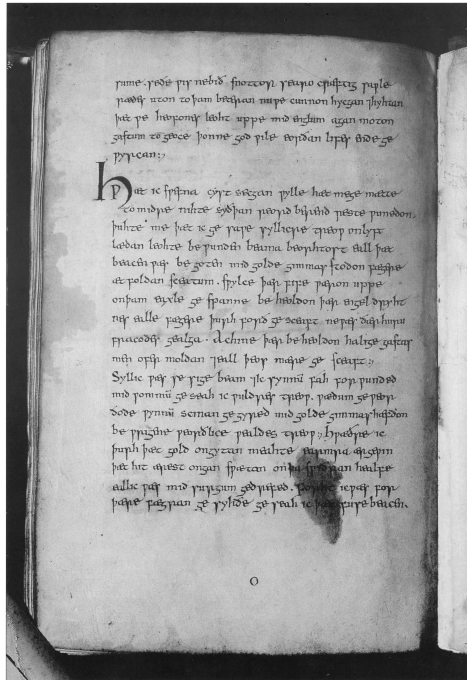 sume . rede þis nebið snottor searo cræftig saƿle
rædes uton to þam beteran nuƿe cunnon hycgan ⁊hyhtan
þæt ƿe heofones leoht uppe mid englum agan moton
gastum to geoce þonne god ƿile eorðan lifes ende ge
ƿyrcan:,
Hƿæt ic sƿefna cyst secgan ƿylle hæt mege mætte
to midre nihte syðþan reord berend reste ƿunedon.
þuhte me þæt ic ge saƿe syllicre treoƿ onlyft
lædan leohte be ƿunden beama beorhtost eall þæt
beacen ƿæs be goten mid golde gimmas stodon fægere
æt foldan sceatum . sƿylce þær fife ƿæron uppe
onþam eaxle ge spanne be heoldon þær engel dryht
nes ealle fægere þurh forð ge sceaft neƿæs ðær huru
fracodes gealga . Achine þær be heoldon halige gastas
men ofer moldan ⁊eall þeos mære ge sceaft:,
Syllic ƿæs se sige beam ⁊ic synnū fah forƿunded
mid sommū ge seah ic ƿuldres treoƿ. ƿædum ge ƿeor
ðode ƿynnū scinan ge gyred mid golde gimmas hæfdon
be ƿrigene ƿeorðlice ƿealdes treoƿ:, hƿæðre ic
þurh þæt gold ongytan meahte earmra ærgeƿin
þæt hit ærest ongan sƿætan onþa sƿiðran healfe
eall ic ƿæs mid surgum gedrefed. forht ic ƿæs for
þære fægran ge syhðe ge seah ic þæt fuse beacen.